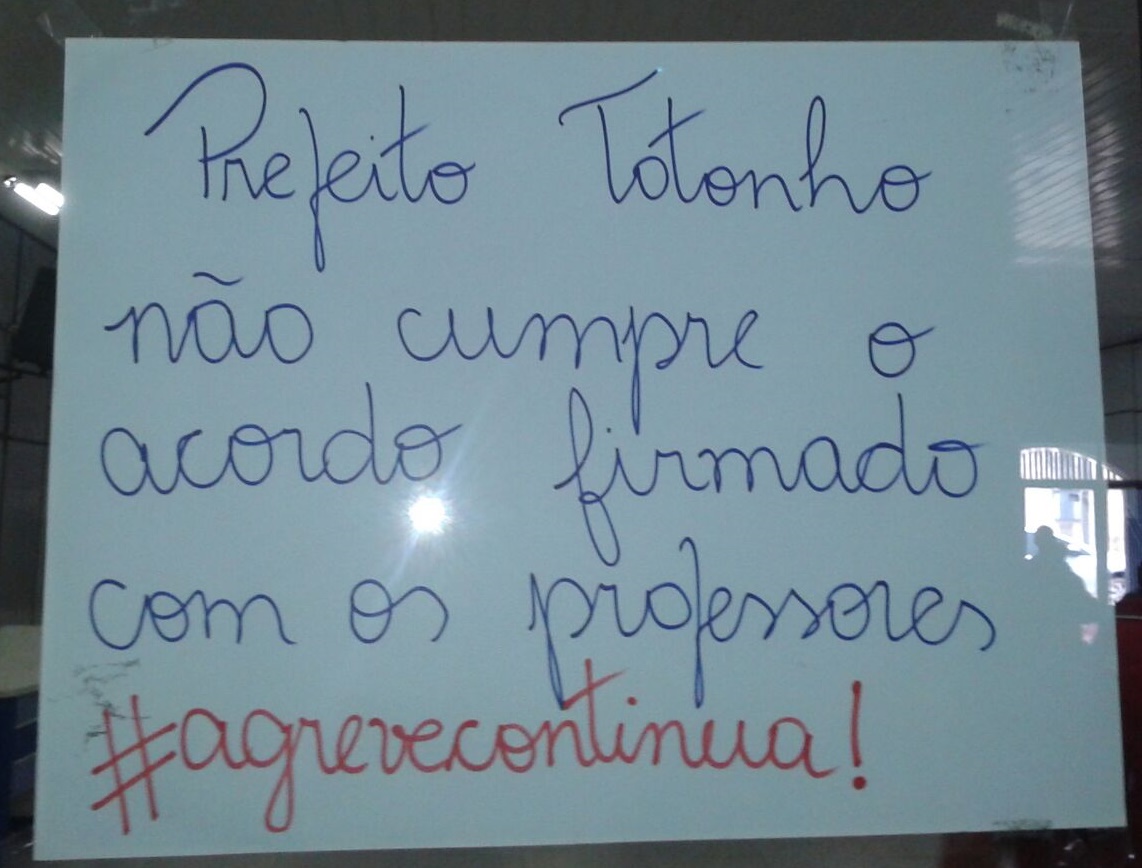 Prefeito Totonho
não cumpre o
acordo firmado
com os professores
#agrevecontinua!